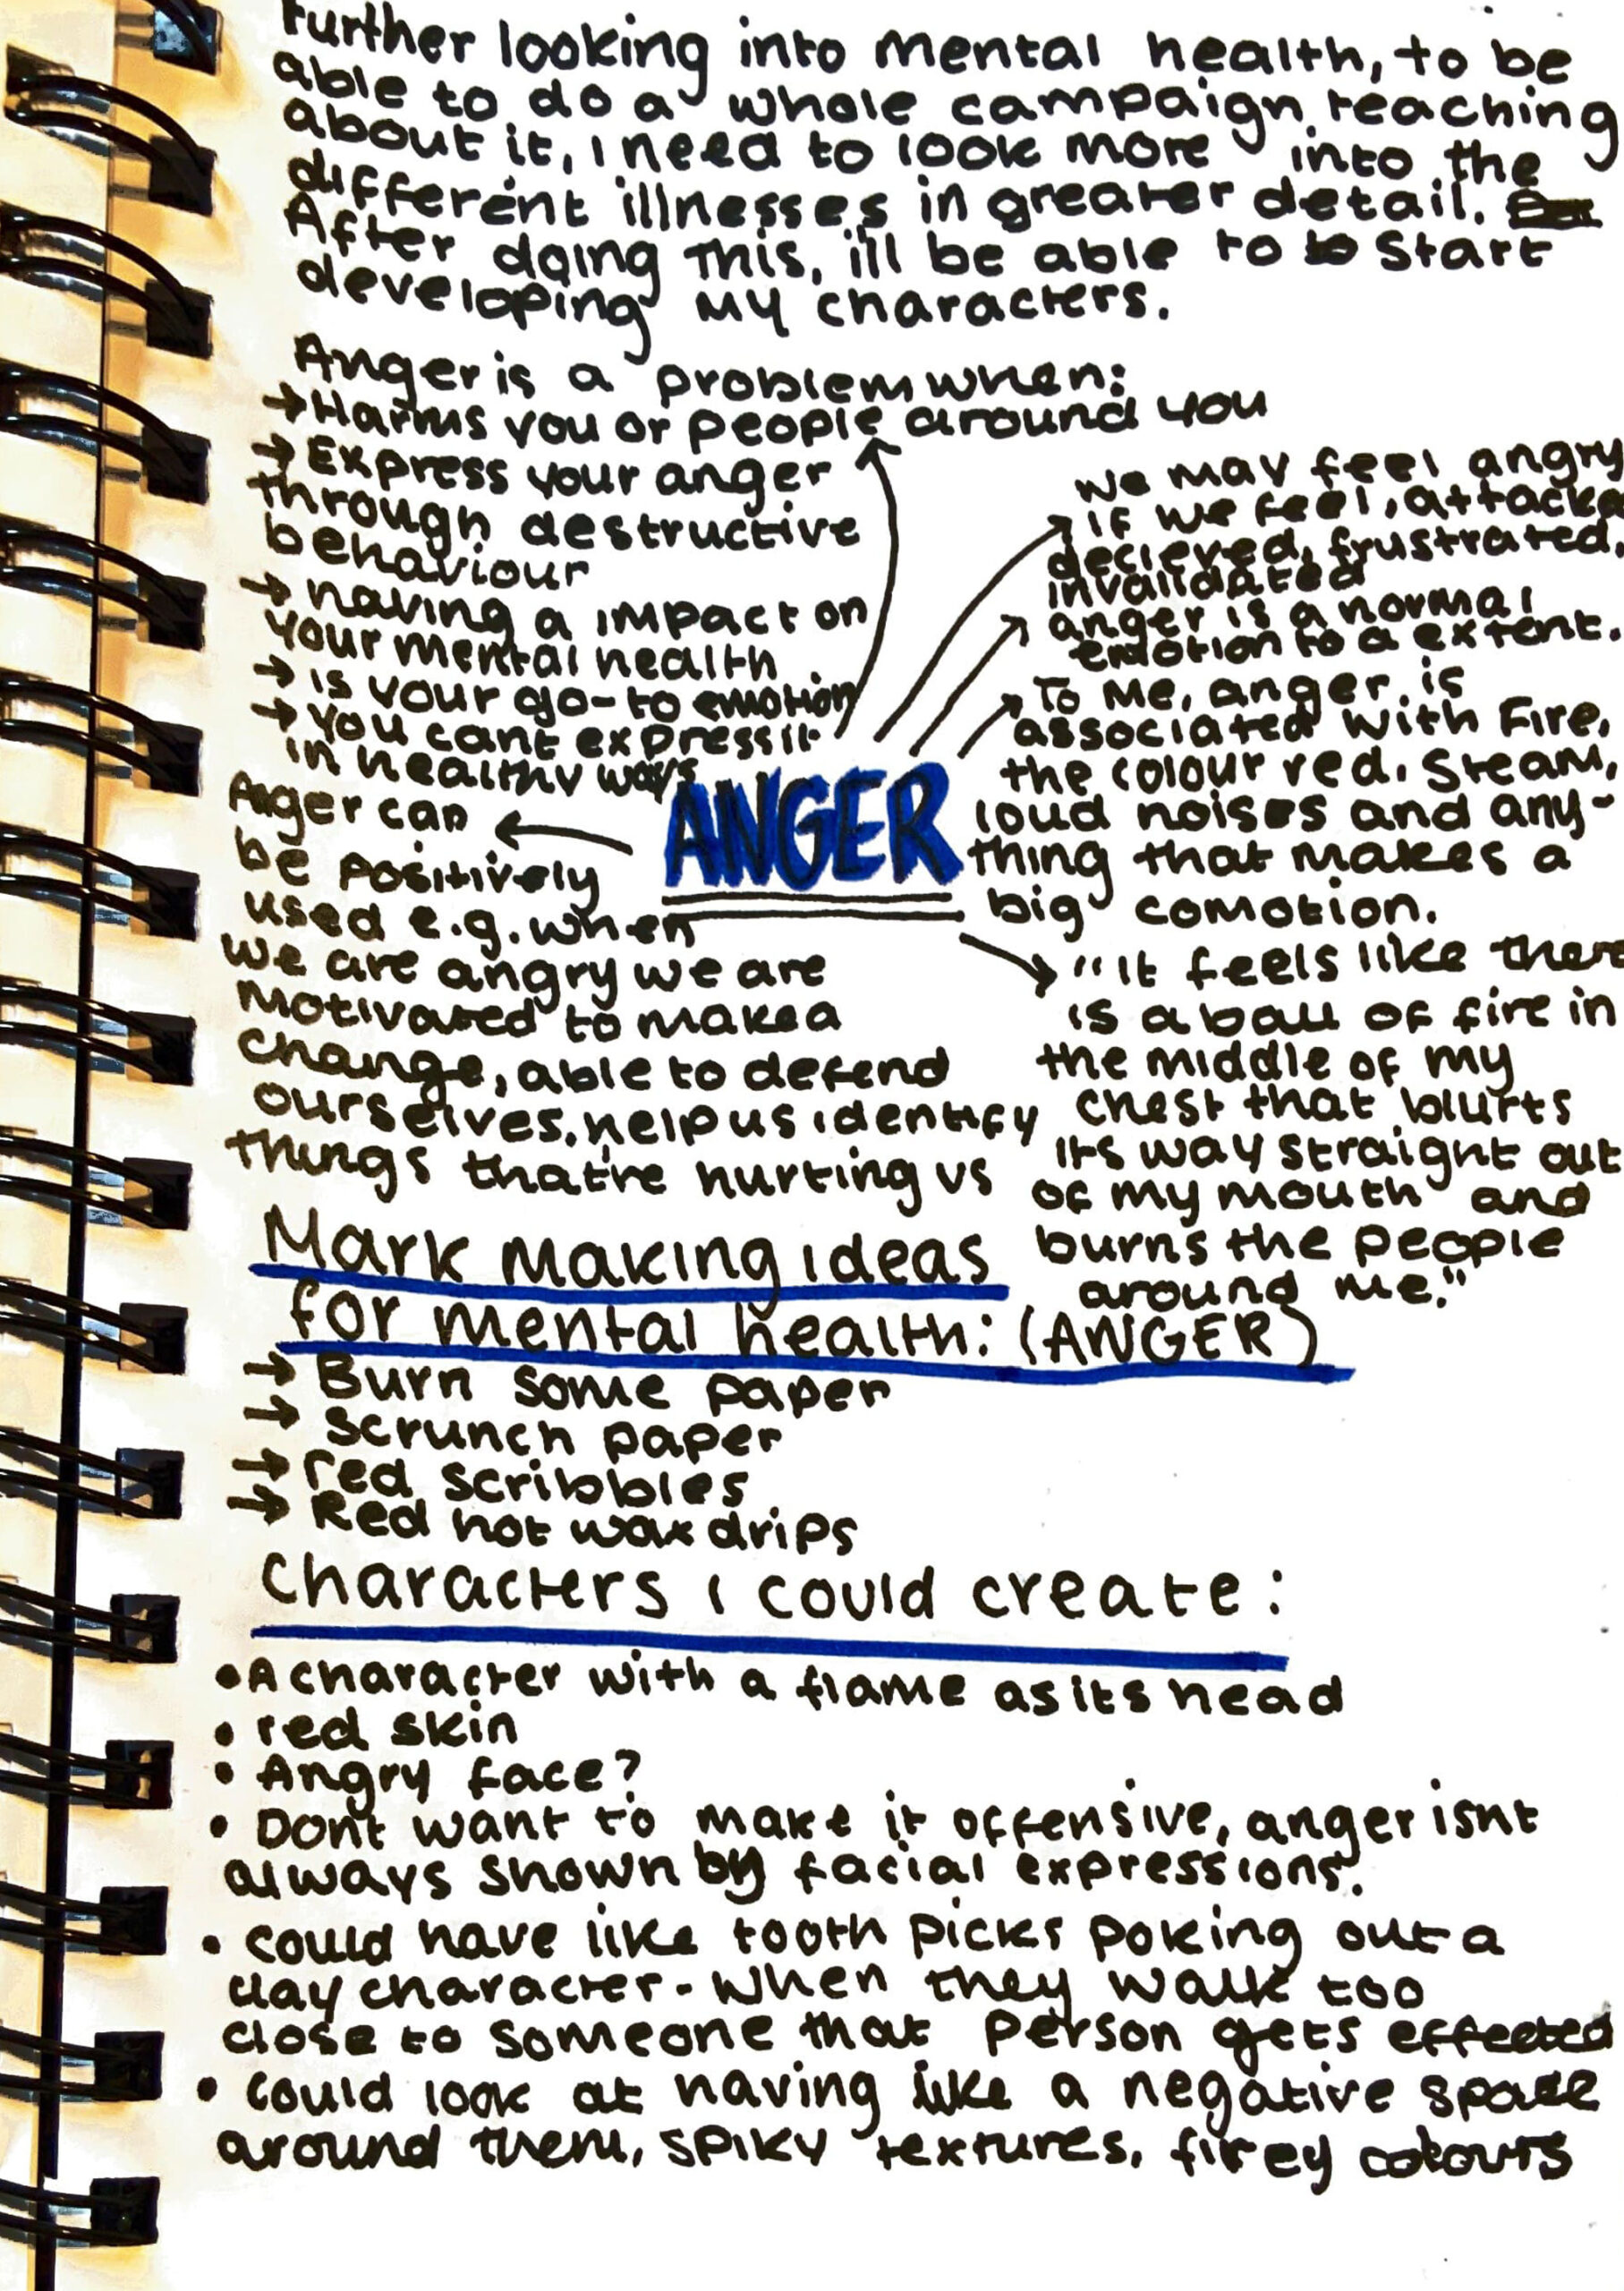 Further looking into mental health, to be
able to do a whole campaign teaching
about it, I need to look more into the
different illnesses in greater detail.
After doing this, ill be able to to start
developing my characters.
Anger is a problem when:
→ Harms you or people around you
→ Express your anger
through destructive
behaviour
→ having a impact on
your mental health
→ is your go-to emotion
→ you cant express it
in healthy ways
We may feel angry
if we feel, attacke
decieved, frustrated,
invalidated
anger is a normal
emotion to a extent.
To me, anger is
associated with fire,
the colour red, steam,
loud noises and any-
thing that makes a
big comotion.
ANGER
Anger can
be positively
used e.g. when
we are angry we are
motivated to make a
change, able to defend
ourselves, help us identify
things that're hurting us
"It feels like ther
is a ball of fire in
the middle of my
chest that blurts
its way straight out
of my mouth and
burns the people
around me."
Mark making ideas
for mental health: (ANGER)
→ Burn some paper
→ Scrunch paper
→ red scribbles
→ Red hot wax drips
Characters I could create:
• A character with a flame as its head
• red skin
• Angry face?
• Dont want to make it offensive, anger isnt
always shown by facial expressions.
• could have like tooth picks poking out a
clay character - when they walk too
close to someone that person gets effected
• could look at having like a negative space
around them, spiky textures, firey colours